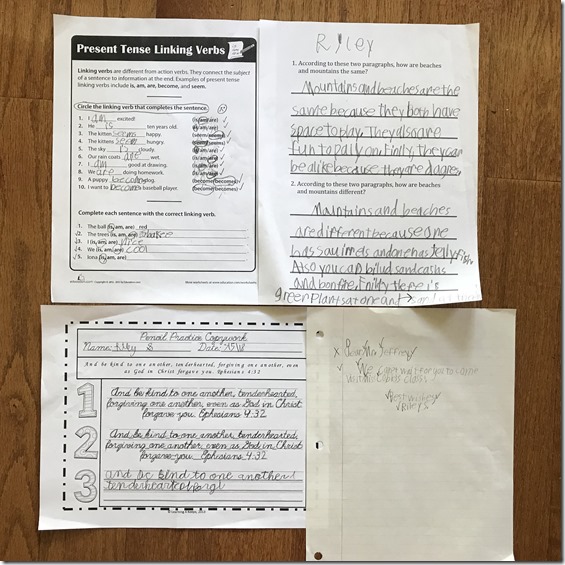 Present Tense Linking Verbs
Linking verbs are different from action verbs. They connect the subject
of a sentence to information at the end. Examples of present tense
linking verbs include is, am, are, become, and seem.
Circle the linking verb that completes the sentence.
1. I am excited! (is/am/are)
2. He is ten years old. (is/am/are)
3. The kitten seems happy. (seem/seems)
4. The kittens seem hungry. (seem/seems)
5. The sky is cloudy. (is/am/are)
6. Our rain coats are wet. (is/am/are)
7. I am good at drawing. (is/am/are)
8. We are doing homework. (is/am/are)
9. A puppy becomes dog. (become/becomes)
10. I want to become baseball player. (become/becomes)
Complete each sentence with the correct linking verb.
1. The ball (is, am, are) red
2. The trees (is, am, are)
3. I (is, am, are) nice
4. We (is, am, are) cool
5. Iona (is, am, are)
Riley
1. According to these two paragraphs, how are beaches
and mountains the same?
Mountains and beaches are the
same because they both have
space to play. They also are
fun to pally on. Finlly, they can
be alike because they are
2. According to these two paragraphs, how are beaches
and mountains different?
Mountains and beaches
are different because one
has squirrels and one has jellyfish
Also you can bilud sandcashs
and bonfire. Finlly there is
green plants at one and
Pencil Practice Copywork
Name: Riley S Date:
And be kind to one another, tenderhearted, forgiving one another, even
as God in Christ forgave you. Ephesians 4:32
1
And be kind to one another, tenderhearted,
forgiving one another, even as God in Christ
forgave you. Ephesians 4:32
2
And be kind to one another, tenderhearted,
forgiving one another, even as God in Christ
forgave you. Ephesians 4:32
3
and be kind to one another
tenderhearted forgi
Dear Mr. Jeffrey
We can't wait for you to come
class
Best wishes
Riley S